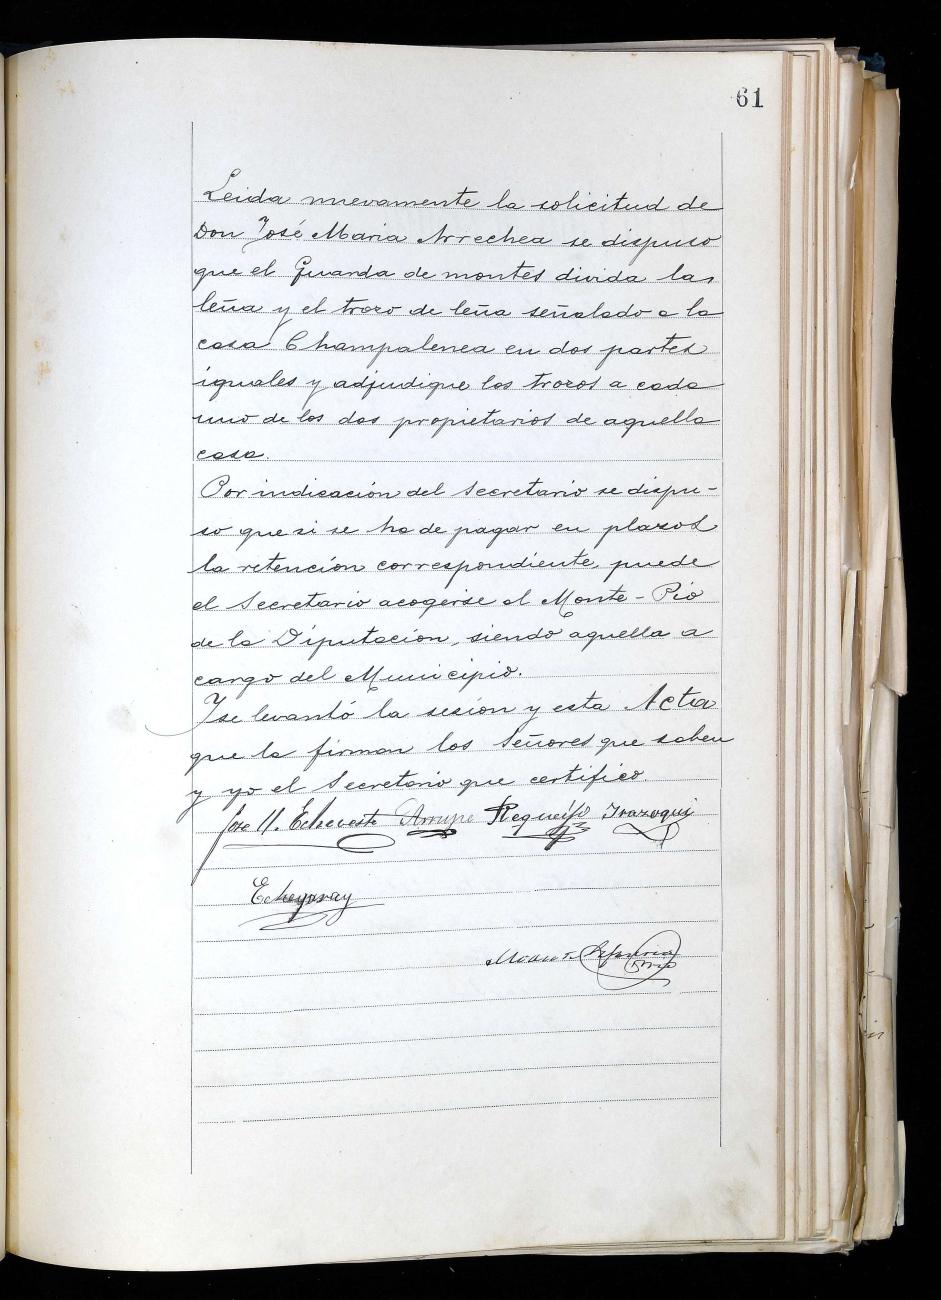 61
Leida nuevamente la solicitud de
Don José Maria Arrechea se dispuso
que el Guarda de montes divida las
leña y el trozo de leña señalado a la
casa Champalenea en dos partes
iguales y adjudique los trozos a cada
uno de los dos propietarios de aquella
casa.
Por indicación del Secretario se dispu-
so que si se ha de pagar en plazos
la retención correspondiente, puede
el Secretario acogerse al Monte-Pio
de la Diputación, siendo aquella a
cargo del Municipio.
Y se levantó la sesión y esta Acta
que la firman los Señores que saben
y yo el Secretario que certifico.
José M. Echeveste Arrupe Requeijo Irazoqui
Echegaray